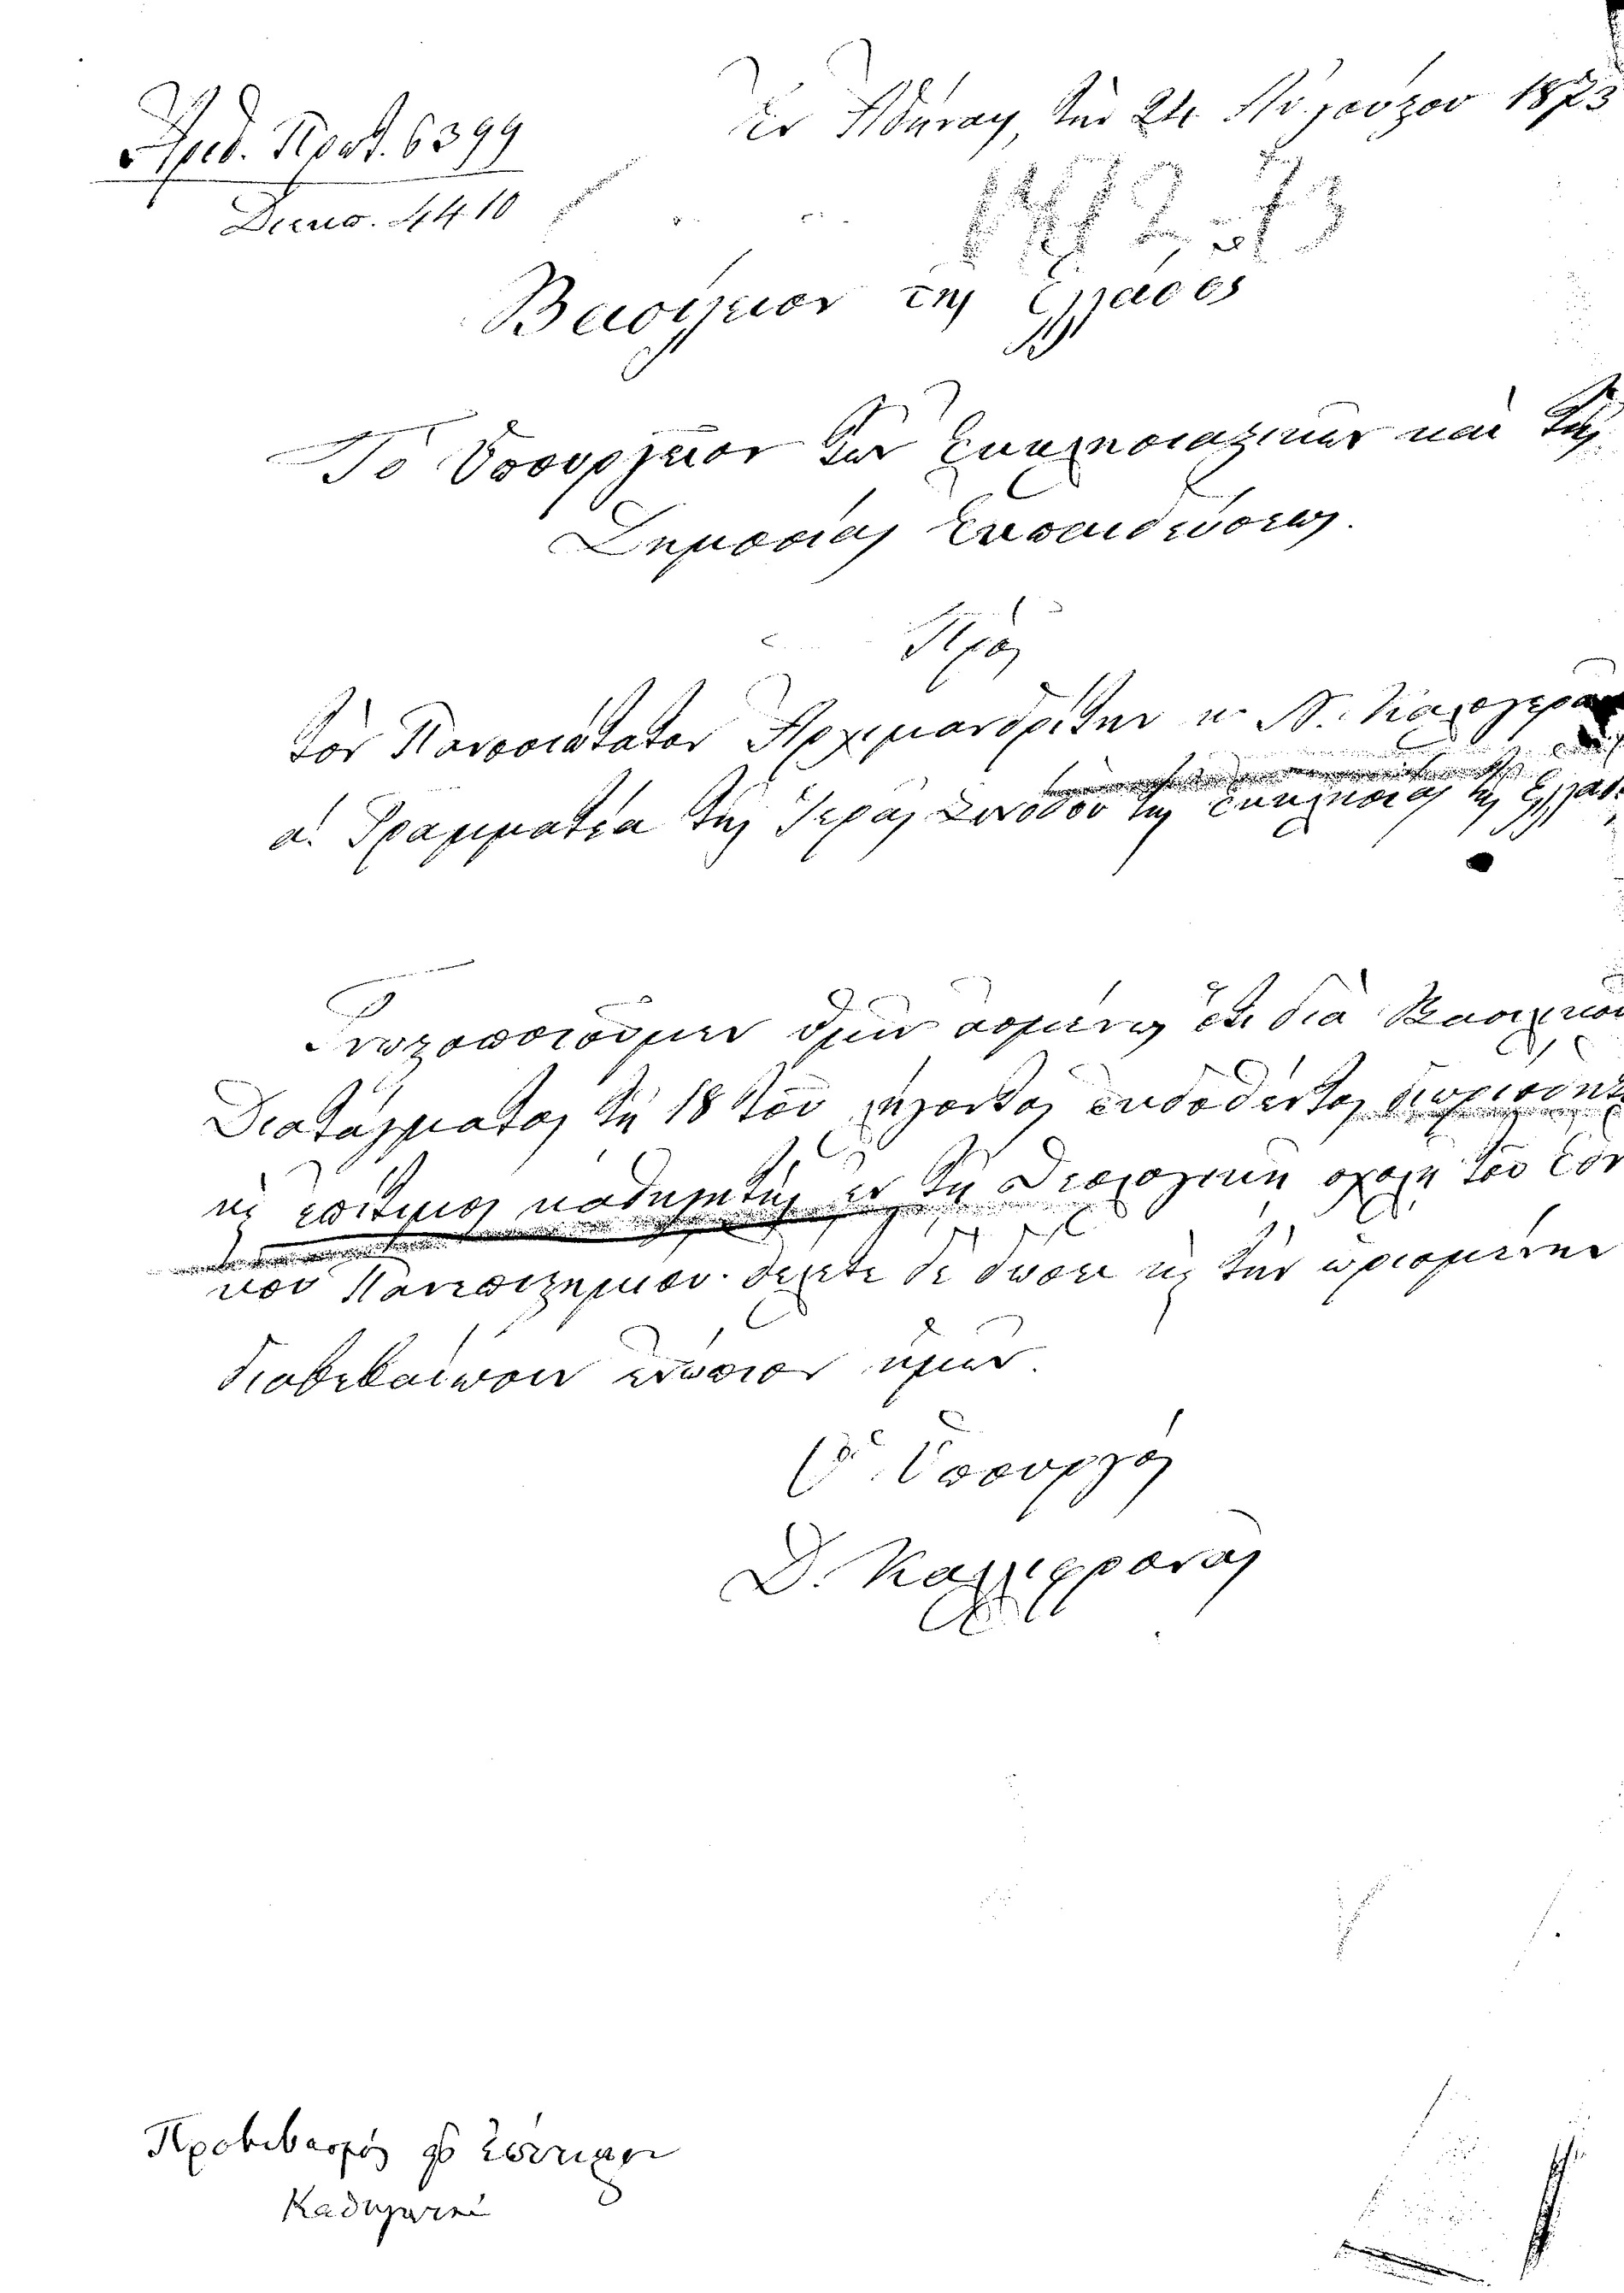 Ἐν Ἀθήναις τὴν 24 Αὐγούστου 1873
Ἀριθ. Πρωτ. 6399
Διεκπ. 4410
1872-73
Βασίλειον τῆς Ἑλλάδος
Τὸ Ὑπουργεῖον τῶν Ἐκκλησιαστικῶν καὶ τῆς
Δημοσίας Ἐκπαιδεύσεως.
Πρὸς
τὸν Πανοσιώτατον Ἀρχιμανδρίτην κ. Ν. Καλογερᾶν
α! Γραμματέα τῆς Ἱερᾶς Συνόδου τῆς Ἐκκλησίας τῆς Ἑλλάδ
Γνωστοποιοῦμεν ὑμῖν ἀσμένως ὅτι διὰ Βασιλικοῦ
Διατάγματος τῇ 18 τοῦ λήγοντος ἐκδοθέντος διωρίσθητε
εἰς ἐπίτιμος καθηγητὴς ἐν τῇ Θεολογικῇ σχολῇ τοῦ Ἐθν
κοῦ Πανεπιστημίου. θέλετε δὲ δώσει εἰς τὴν ὡρισμένην
διαβεβαίωσιν ἐνώπιον ἡμῶν.
Ὁ Ὑπουργὸς
Δ. Καλλιφρονᾶς
Προβιβασμός
Καθηγητοῦ